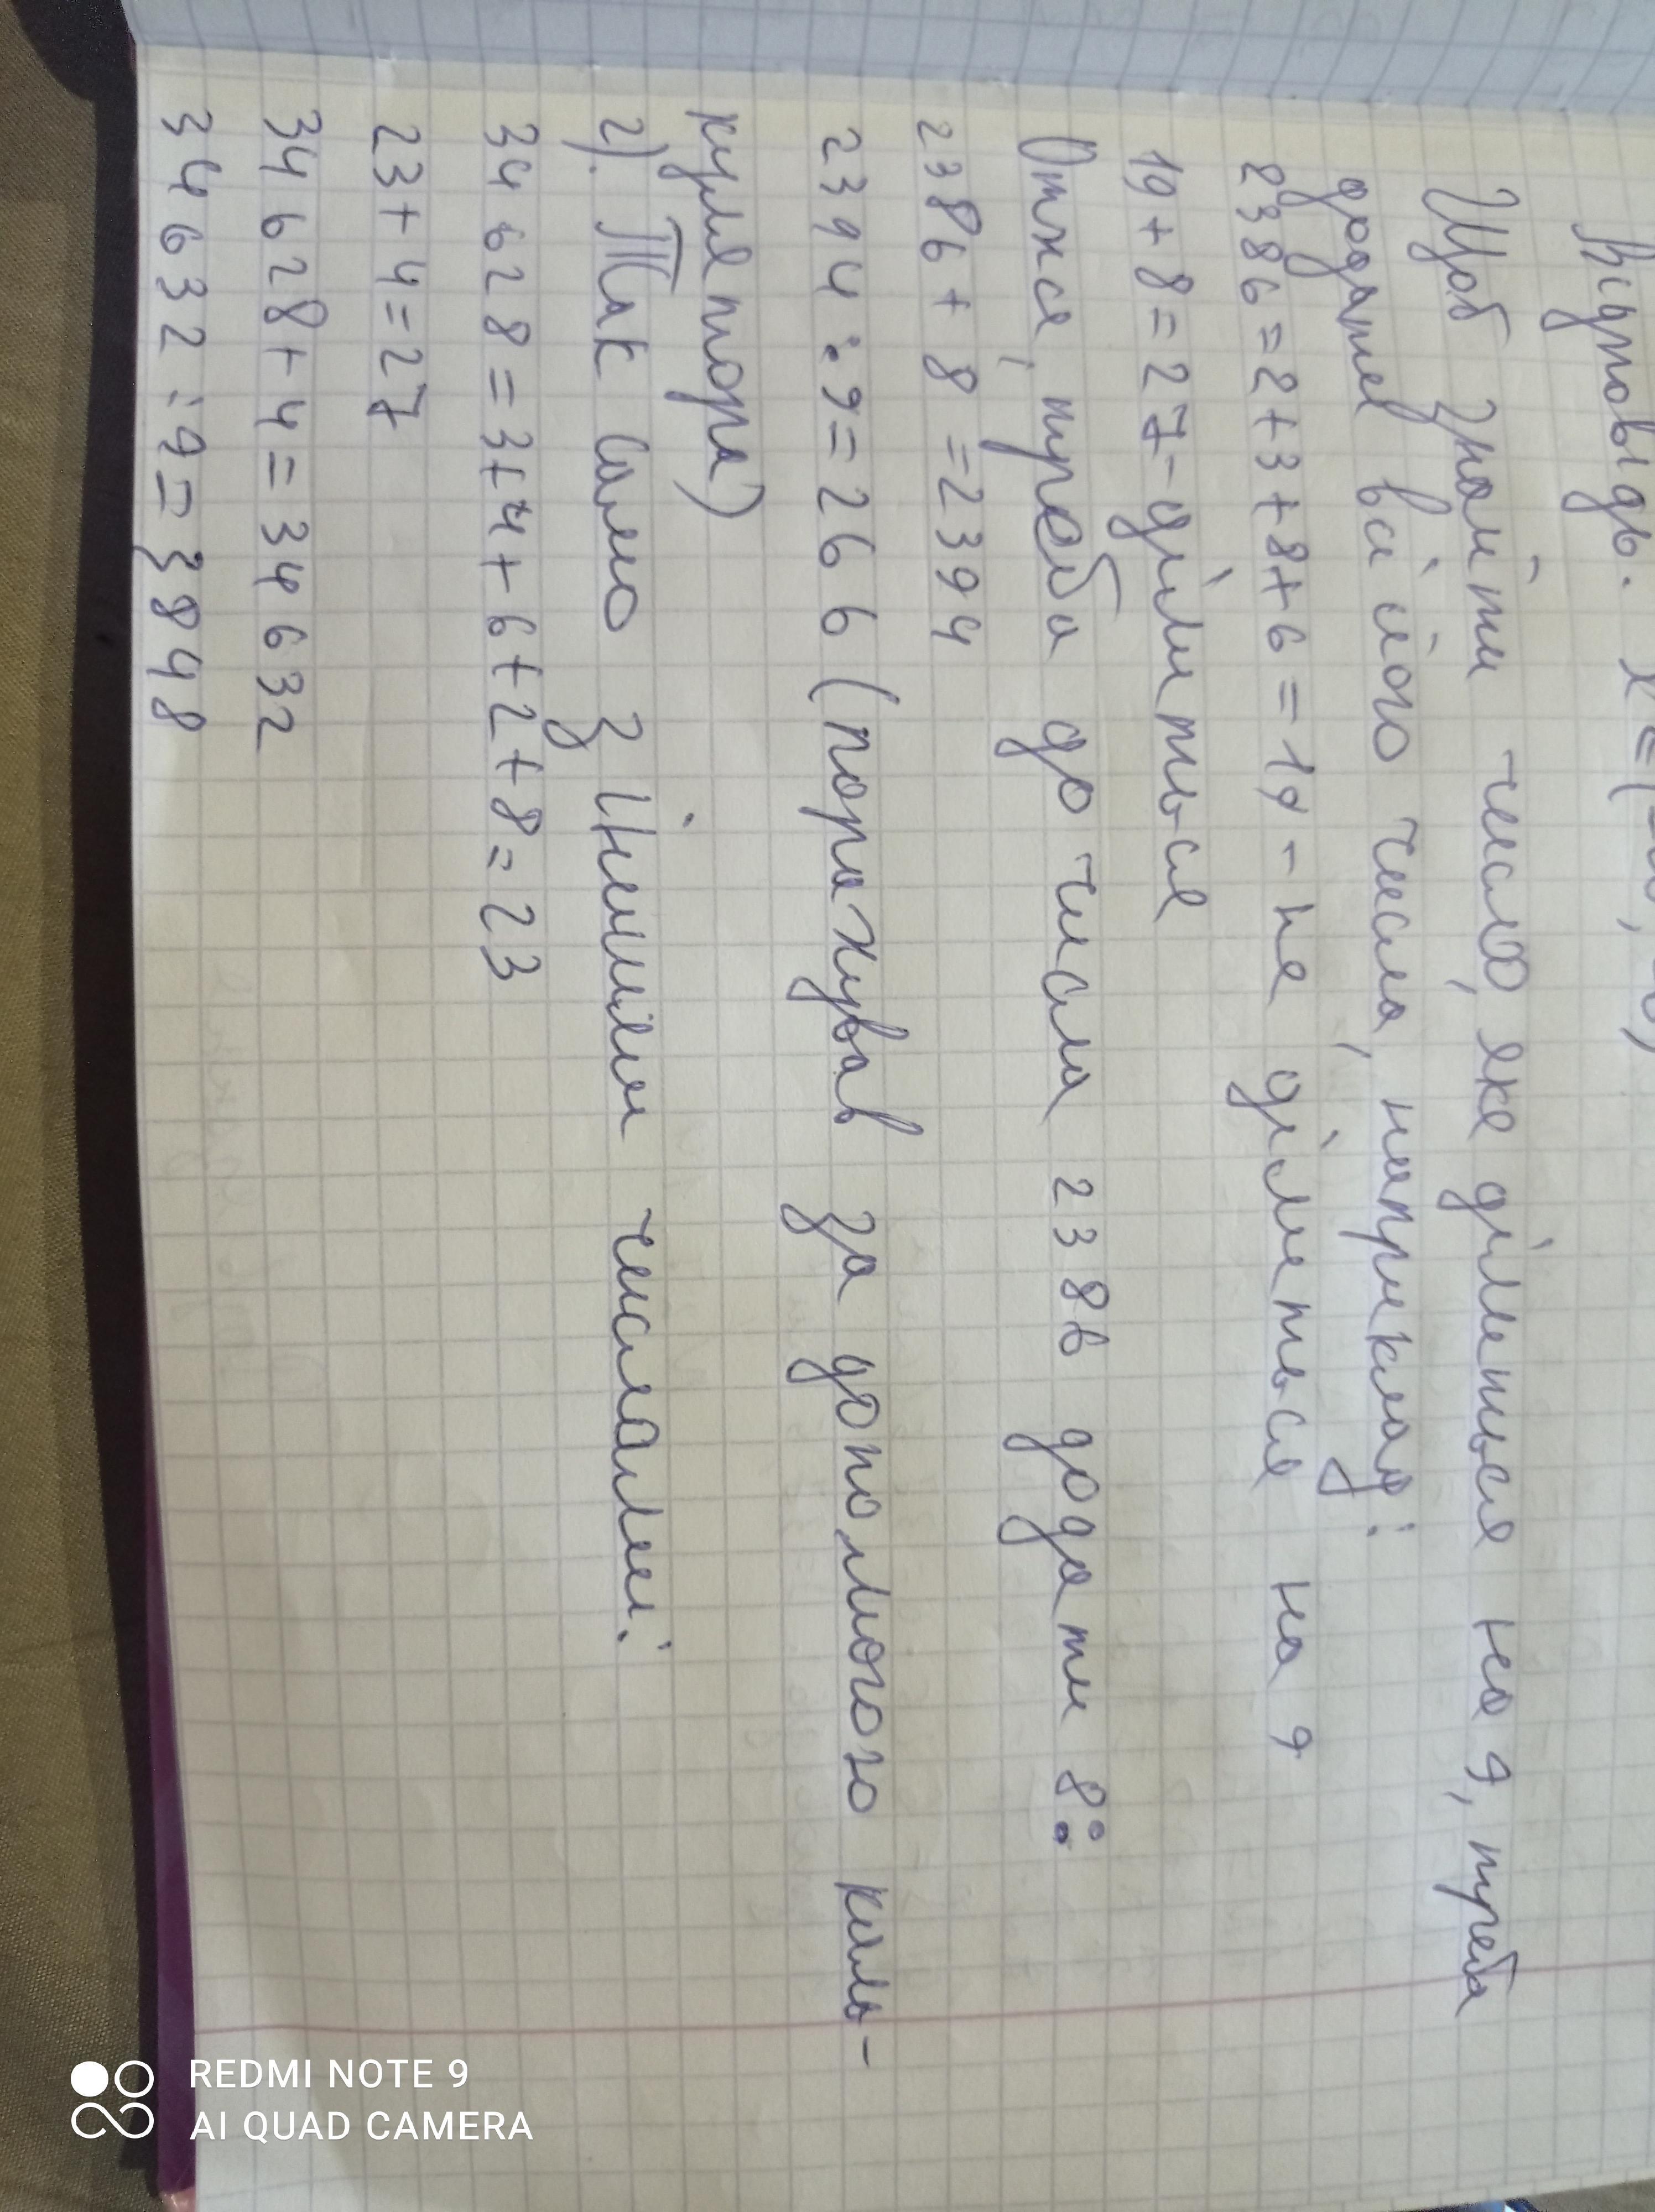 Відповідь. x=(
Щоб знайти число, яке ділиться на 9, треба
додати всі його числа, наприклад:
2386 = 2+3+8+6 = 19 - не ділиться на 9
19 + 8 = 27 - ділиться
Отже, треба до числа 2386 додати 8:
2386 + 8 = 2394
2394 : 9 = 266 (порахував за допомогою каль-
кулятора)
2). Так само з іншими числами:
34628 = 3+4+6+2+8 = 23
23+4=27
34628+4=34632
34632:9=3848
REDMI NOTE 9
AI QUAD CAMERA